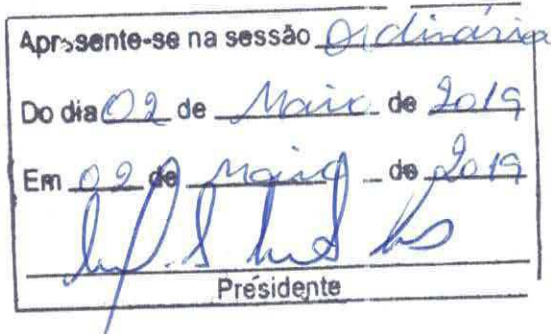 Apresente-se na sessão Ordinária
Do dia 02 de Maio de 2019
Em 02 de Maio de 2019
Presidente